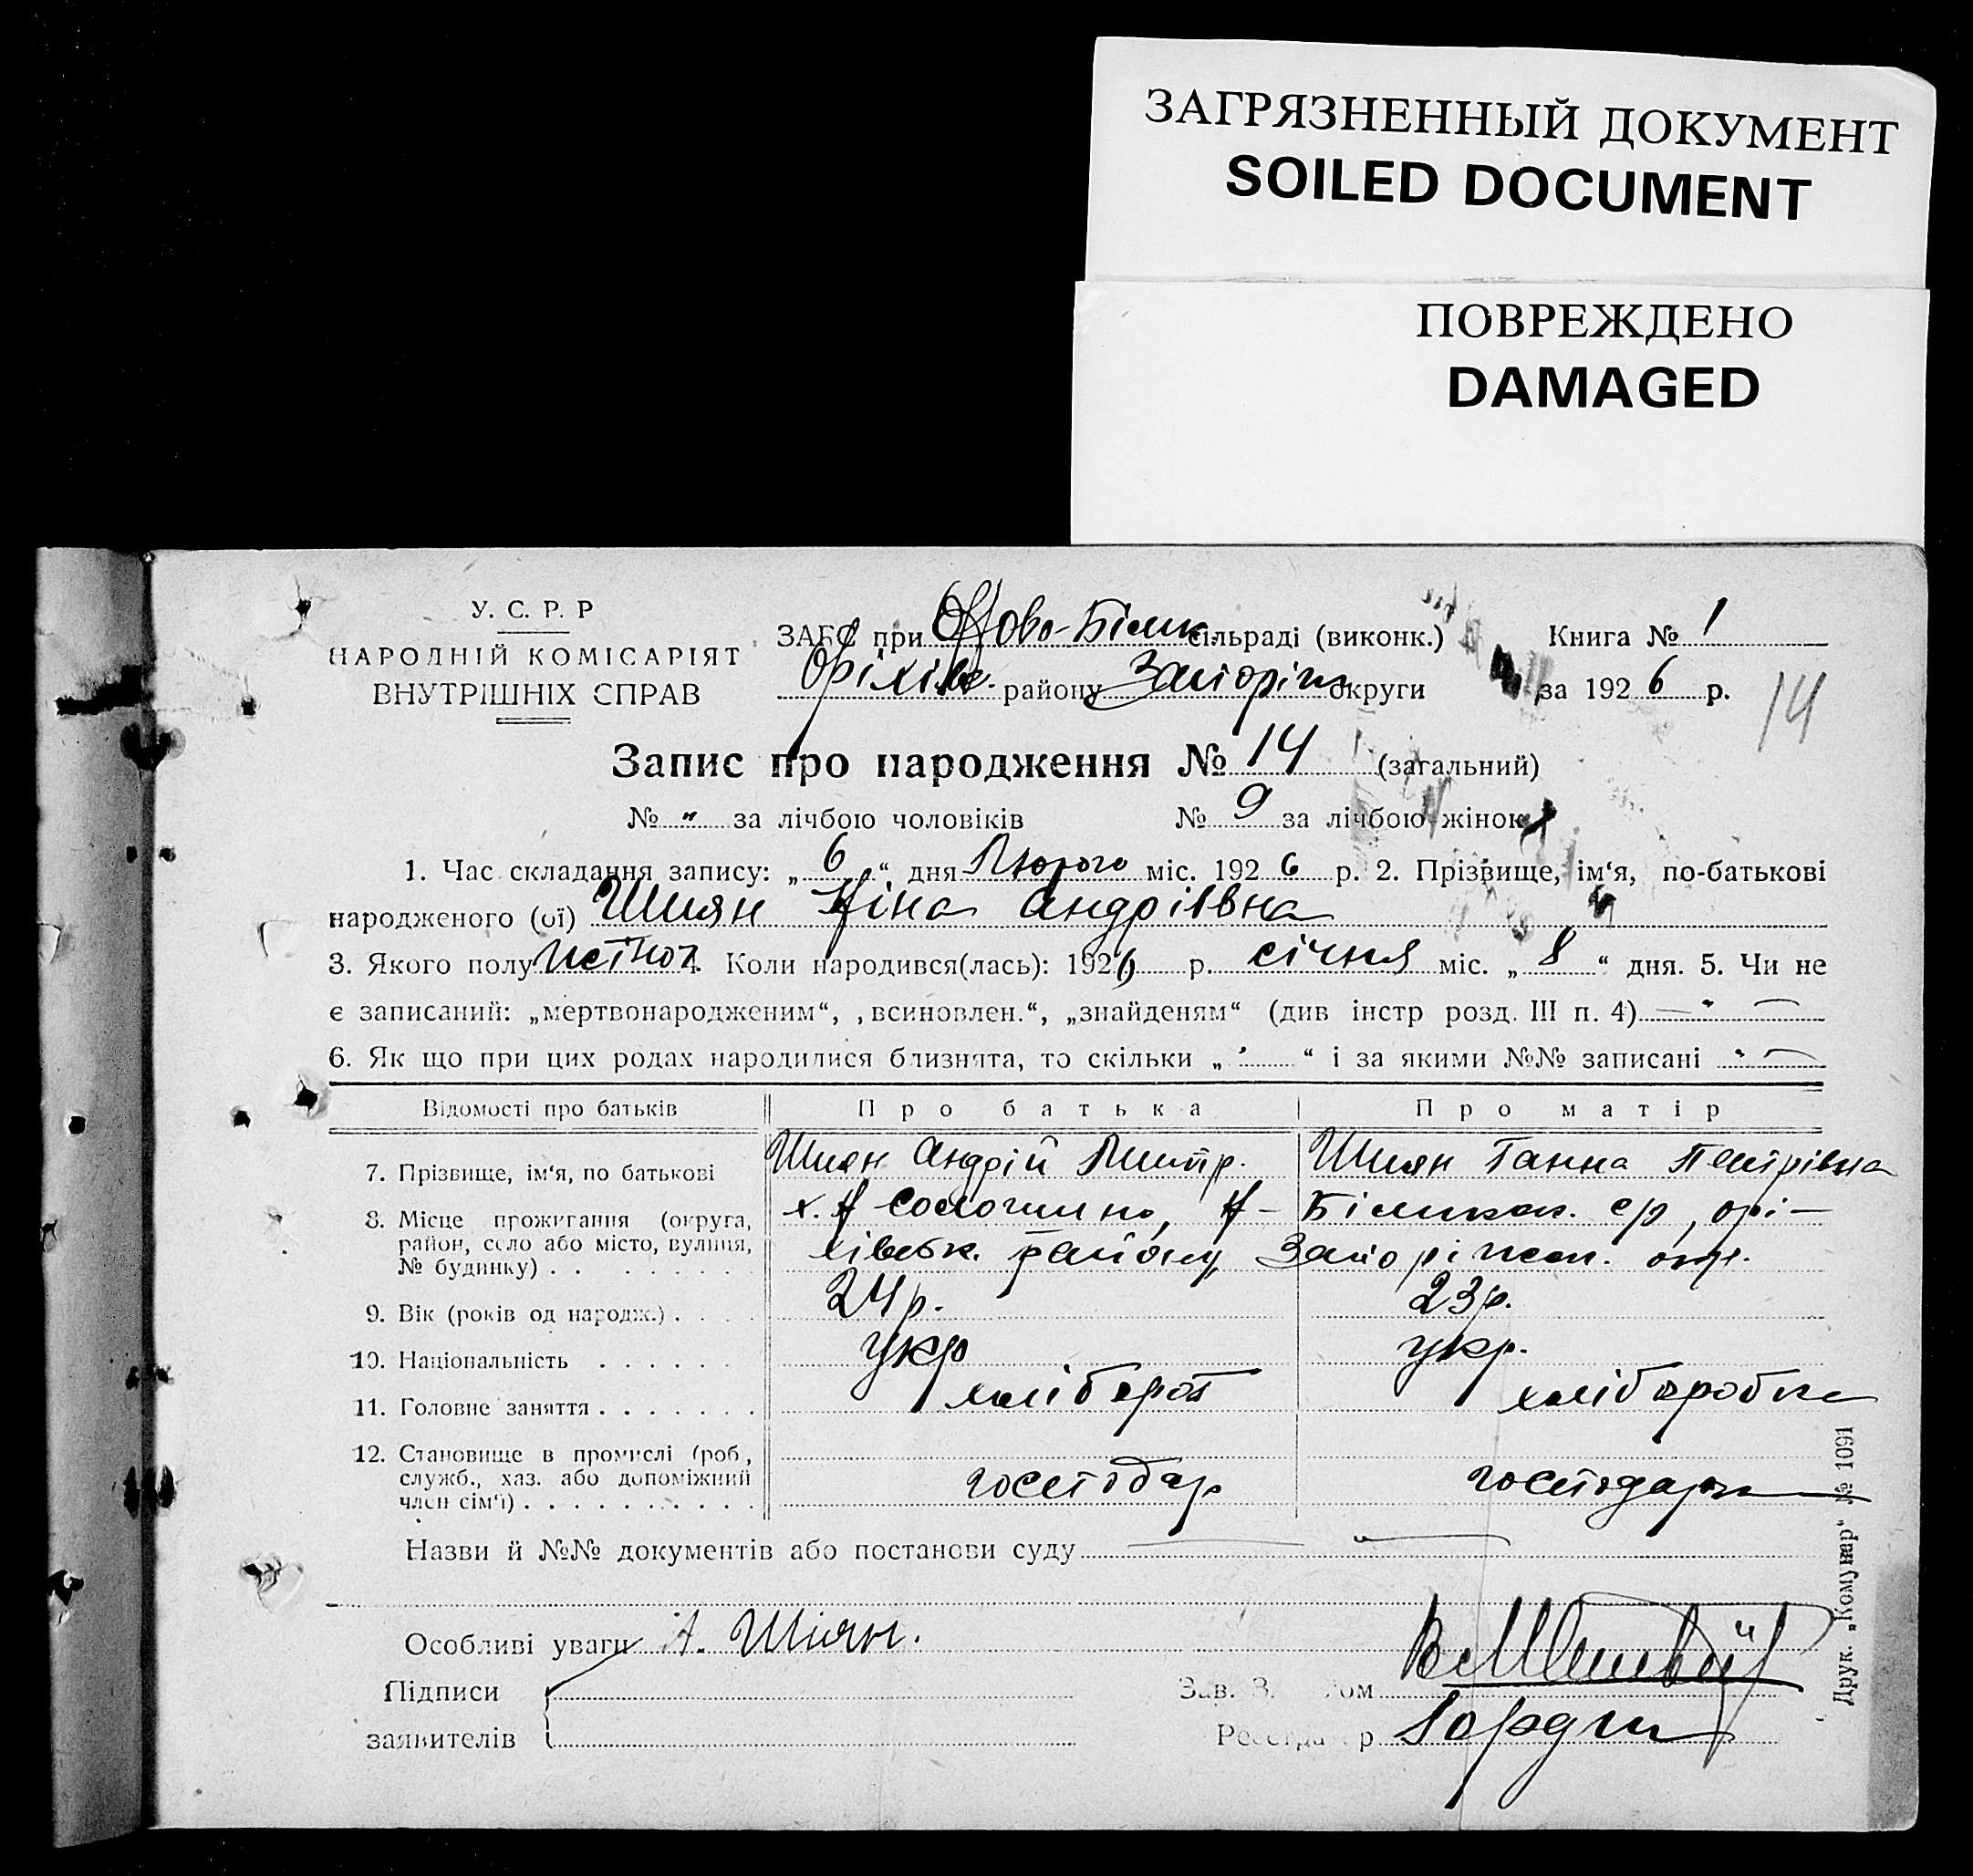 ЗАГРЯЗНЕННЫЙ ДОКУМЕНТ
SOILED DOCUMENT
ПОВРЕЖДЕНО
DAMAGED
У. С. Р. Р
НАРОДНІЙ КОМІСАРІЯТ
ВНУТРІШНІХ СПРАВ
ЗАГС при Ново-Білик. сільраді (виконк.) Книга № 1
Оріхівс. району Запоріж округи за 1926 р. 14
Запис про народження № 14 (загальний)
№ " за лічбою чоловіків № 9 за лічбою жінок
1. Час складання запису: „6“ дня Лютого міс. 1926 р. 2. Прізвище, ім‘я, по-батькові
народженого (ої) Шиян Ніна Андріївна
3. Якого полу жіноч 4. Коли народився(лась): 1926 р. січня міс. „8“ дня. 5. Чи не
є записаний: „мертвонародженим“, „всиновлен.“, „знайденям“ (див інстр розд. III п. 4) — " —
6. Як що при цих родах народилися близнята, то скільки „ “ і за якими №№ записані " —
Відомості про батьків Про батька Про матір
7. Прізвище, ім‘я, по батькові Шиян Андрій Дмитр. Шиян Ганна Петрівна
8. Місце проживання (округа, район, село або місто, вулиця, № будинку) х. Н Солошино, Н-Біликов. с/р, орі-
хівськ. району Запоріжськ. окр.
9. Вік (років од народж.) 24 р. 23 р.
10. Національність укр укр.
11. Головне заняття хлібороб хлібороб
12. Становище в промислі (роб, служб., хаз. або допоміжний член сім‘ї) господар господарк
Назви й №№ документів або постанови суду
Особливі уваги А. Шиян.
Підписи
заявителів
Зав. З ом
Реєстра р
Друк. „Комунар“ № 1091